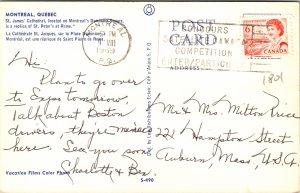 MONTREAL, QUEBEC
St. James' Cathedral, located on Montreal's Dominion Square,
is a replica of St. Peter's at Rome.
La Cathédrale St. Jacques, sur la Place Dominion à
Montréal, est une réplique de Saint Pierre de Rome.
MONTREAL
PM
VIII
1969
P.Q.
POST
CARD
CONCOURS
COMPETITION
ENTER/PARTICIPEZ
ADDRESS
6
1821
Hi,
Plan to go over
to Expo tomorrow.
Talk about Boston
drivers, they're
here.
See you soon
Charlotte & Bex
Mr & Mrs Milton Price
221 Hampton Street
Auburn, Mass, U.S.A.
Vacation Films Color Photo
S-490